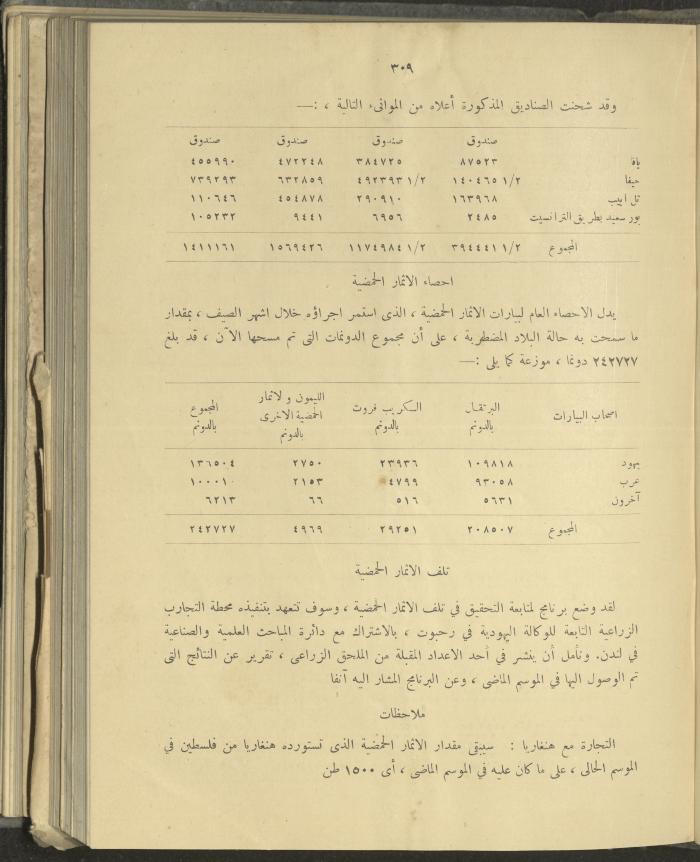 ٣٠٩
وقد شحنت الصناديق المذكورة أعلاه من الموانىء التالية ، :—
صندوق صندوق صندوق صندوق
يافا ٨٧٥٢٣ ٣٨٤٧٢٥ ٤٧٢٢٤٨ ٤٥٥٩٩٠
حيفا ١٤٠٤٦٥ ١/٢ ٤٩٢٣٩٣ ١/٢ ٦٣٢٨٥٩ ٧٣٩٢٩٣
تل ابيب ١٦٣٩٦٨ ٢٩٠٩١٠ ٤٥٤٨٧٨ ١١٠٦٤٦
بور سعيد بطريق الترانسيت ٢٤٨٥ ٦٩٥٦ ٩٤٤١ ١٠٥٢٣٢
المجموع ٣٩٤٤٤١ ١/٢ ١١٧٤٩٨٤ ١/٢ ١٥٦٩٤٢٦ ١٤١١١٦١
احصاء الاثمار الحمضية
يدل الاحصاء العام لبيارات الاثمار الحمضية ، الذى استمر اجراؤه خلال اشهر الصيف ، بمقدار
ما سمحت به حالة البلاد المضطربة ، على أن مجموع الدونمات التى تم مسحها الآن ، قد بلغ
٢٤٢٧٢٧ دونما ، موزعة كما يلى :—
اصحاب البيارات البرتقال بالدونم الكريب فروت بالدونم الليمون ولاثمار الحمضية الاخرى بالدونم المجموع بالدونم
يهود ١٠٩٨١٨ ٢٣٩٣٦ ٢٧٥٠ ١٣٦٥٠٤
عرب ٩٣٠٥٨ ٤٧٩٩ ٢١٥٣ ١٠٠٠١٠
آخرون ٥٦٣١ ٥١٦ ٦٦ ٦٢١٣
المجموع ٢٠٨٥٠٧ ٢٩٢٥١ ٤٩٦٩ ٢٤٢٧٢٧
تلف الاثمار الحمضية
لقد وضع برنامج لمتابعة التحقيق في تلف الاثمار الحمضية ، وسوف تتعهد بتنفيذه محطة التجارب
الزراعية التابعة للوكالة اليهودية في رحبوت ، بالاشتراك مع دائرة المباحث العلمية والصناعية
في لندن. ونأمل أن ينشر في أحد الاعداد المقبلة من الملحق الزراعى ، تقرير عن النتائج التى
تم الوصول اليها في الموسم الماضى ، وعن البرنامج المشار اليه آنفا
ملاحظات
التجارة مع هنغاريا : سيبقى مقدار الاثمار الحمضية الذى تستورده هنغاريا من فلسطين في
الموسم الحالى ، على ما كان عليه في الموسم الماضى ، أى ١٥٠٠ طن